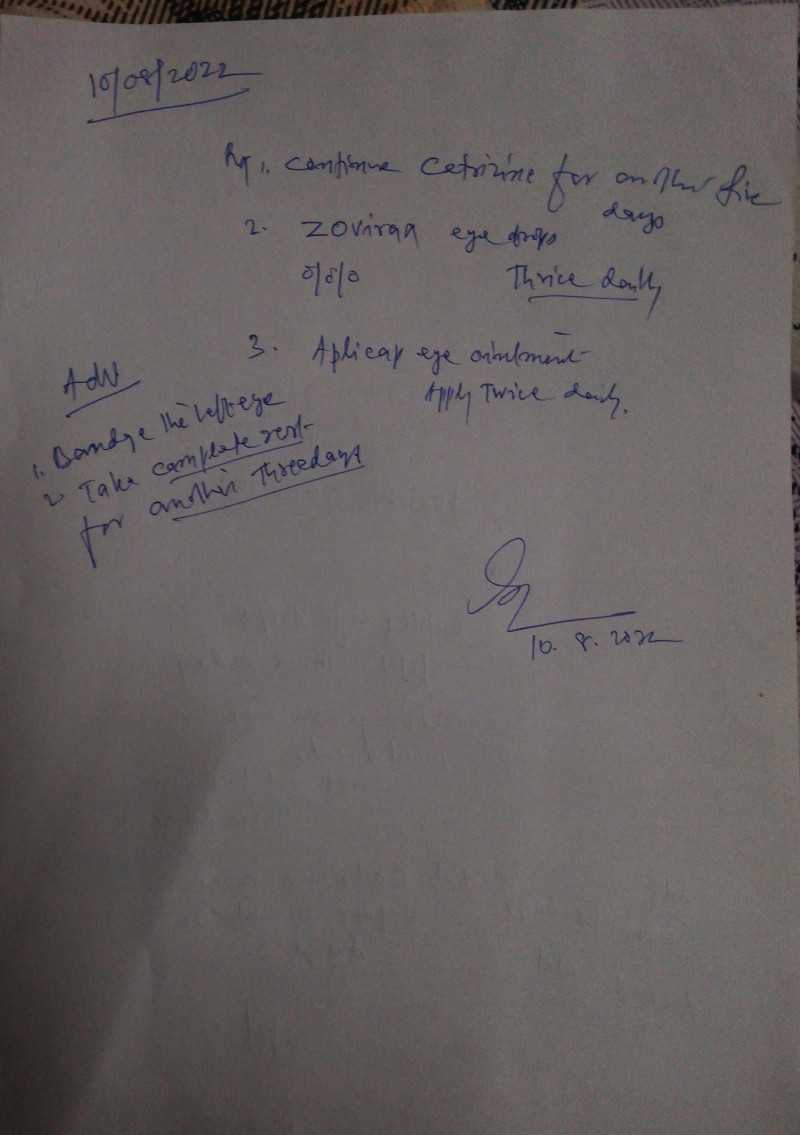 10/08/2022
Rx 1. Continue Cetrizine for another five
days
2. Zovirax eye drops
0/0/0 Thrice daily
3. Aplicap eye ointment
Apply Twice daily.
Adv
1. Bandge the left eye
2. Take complete rest
for another three days
10.8.2022